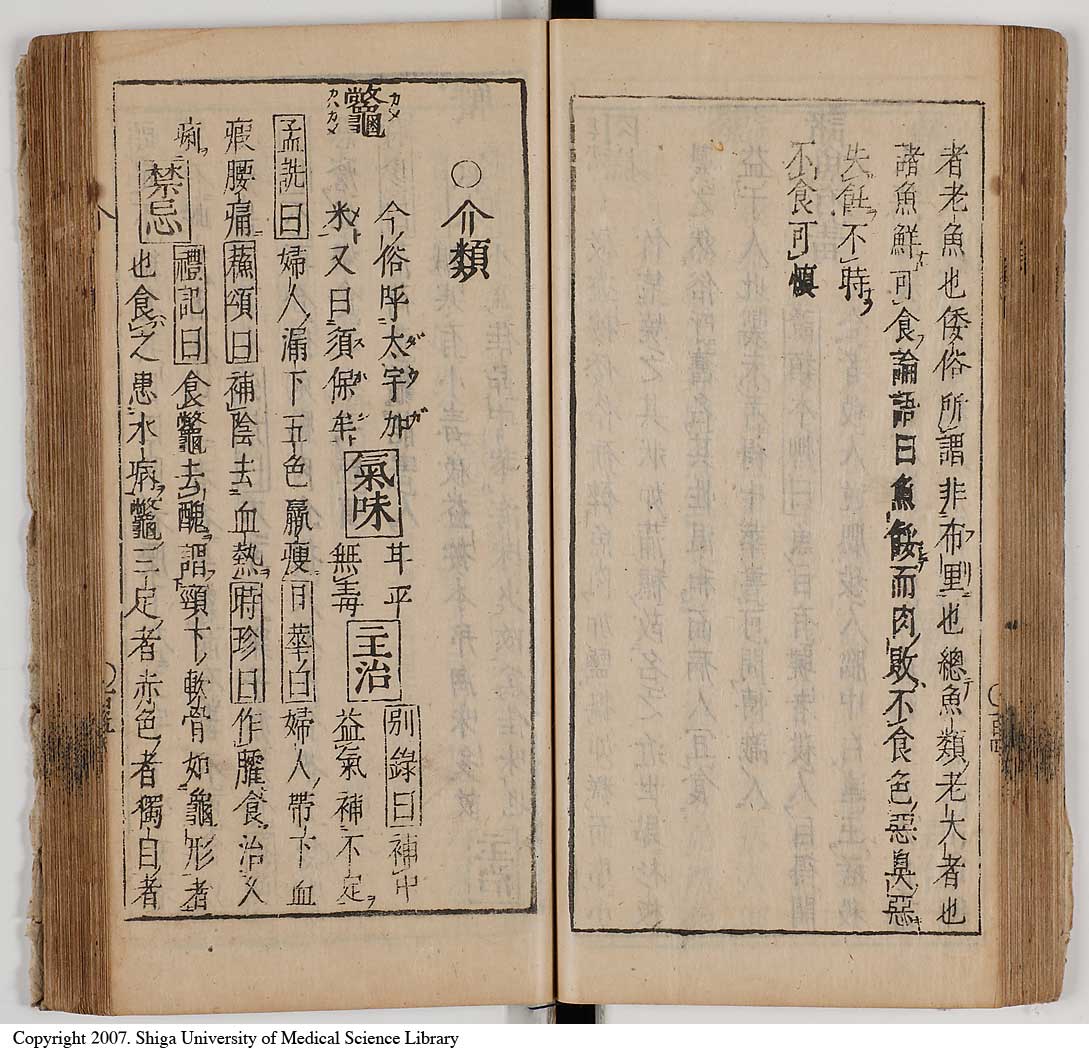 者老魚也倭俗所謂非布里也總魚類老大者也
諸魚鮮可食論語曰魚餒而肉敗不食色惡臭惡
失飪不時
不食可慎
○介類
鼈 今俗呼太宇加 氣味 甘平 主治 別錄曰補中
米又曰須保牟 無毒 益氣補不足
孟詵曰婦人漏下五色羸瘦日華曰婦人帶下血
瘕腰痛蘓頌曰補陰去血熱時珍曰作臛食治久
痢 禁忌 禮記曰食鼈去醜謂頸下軟骨如龜形者
也食之患水病鼈三足者赤色者獨目者
Copyright 2007. Shiga University of Medical Science Library